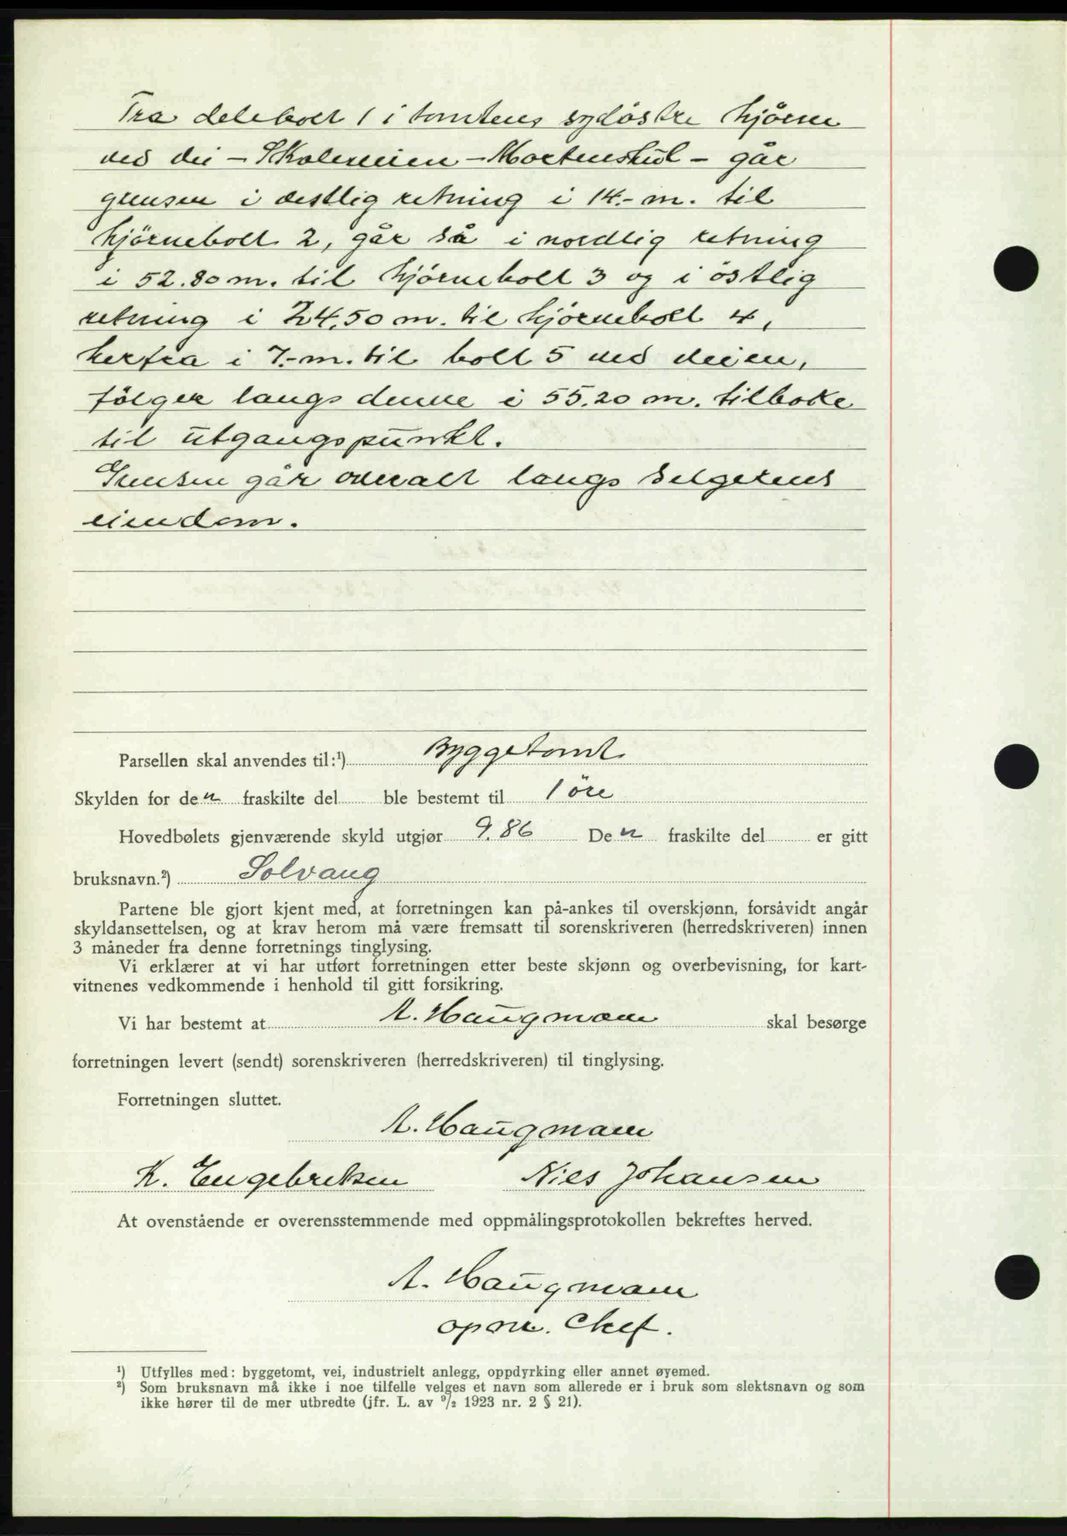 Fra delebolt 1 i tomtens sydöstre hjörne
ved vei - Skoleveien - Mortenshul - går
grensen i vestlig retning i 14.- m. til
hjörnebolt 2, går så i nordlig retning
i 52.80 m. til hjörnebolt 3 og i östlig
retning i 24,50 m. til hjörnebolt 4,
herfra i 7.- m. til bolt 5 ved veien,
fölger langs denne i 55.20 m. tilbake
til utgangspunkt.
Grensen går overalt langs selgerens
eiendom.
Parsellen skal anvendes til:¹) Byggetomt
Skylden for den fraskilte del ble bestemt til 1 öre
Hovedbølets gjenværende skyld utgjør 9.86 Den fraskilte del er gitt
bruksnavn.²) Solvang
Partene ble gjort kjent med, at forretningen kan på-ankes til overskjønn, forsåvidt angår
skyldansettelsen, og at krav herom må være fremsatt til sorenskriveren (herredskriveren) innen
3 måneder fra denne forretnings tinglysing.
Vi erklærer at vi har utført forretningen etter beste skjønn og overbevisning, for kart-
vitnenes vedkommende i henhold til gitt forsikring.
Vi har bestemt at A. Haugmann skal besørge
forretningen levert (sendt) sorenskriveren (herredskriveren) til tinglysing.
Forretningen sluttet.
A. Haugmann
K. Engebretsen Nils Johansen
At ovenstående er overensstemmende med oppmålingsprotokollen bekreftes herved.
A. Haugmann
opm. Chef.
¹) Utfylles med: byggetomt, vei, industrielt anlegg, oppdyrking eller annet øyemed.
²) Som bruksnavn må ikke i noe tilfelle velges et navn som allerede er i bruk som slektsnavn og som
ikke hører til de mer utbredte (jfr. L. av ⁹/₂ 1923 nr. 2 § 21).